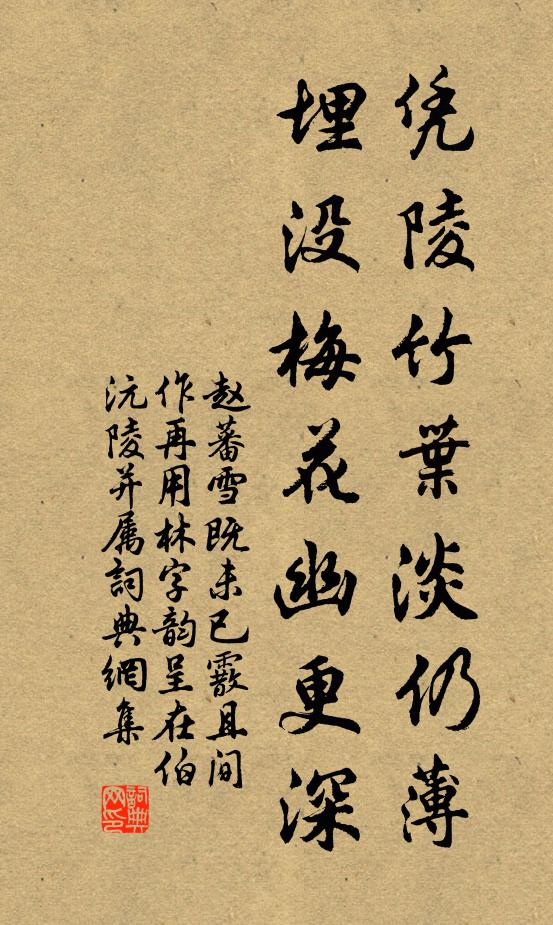 凭陵竹葉淡仍薄
埋没梅花幽更深
赵蕃雪既未已霰且间
作再用林字韵呈在伯
沅陵并属詞典網集
詞典
网印